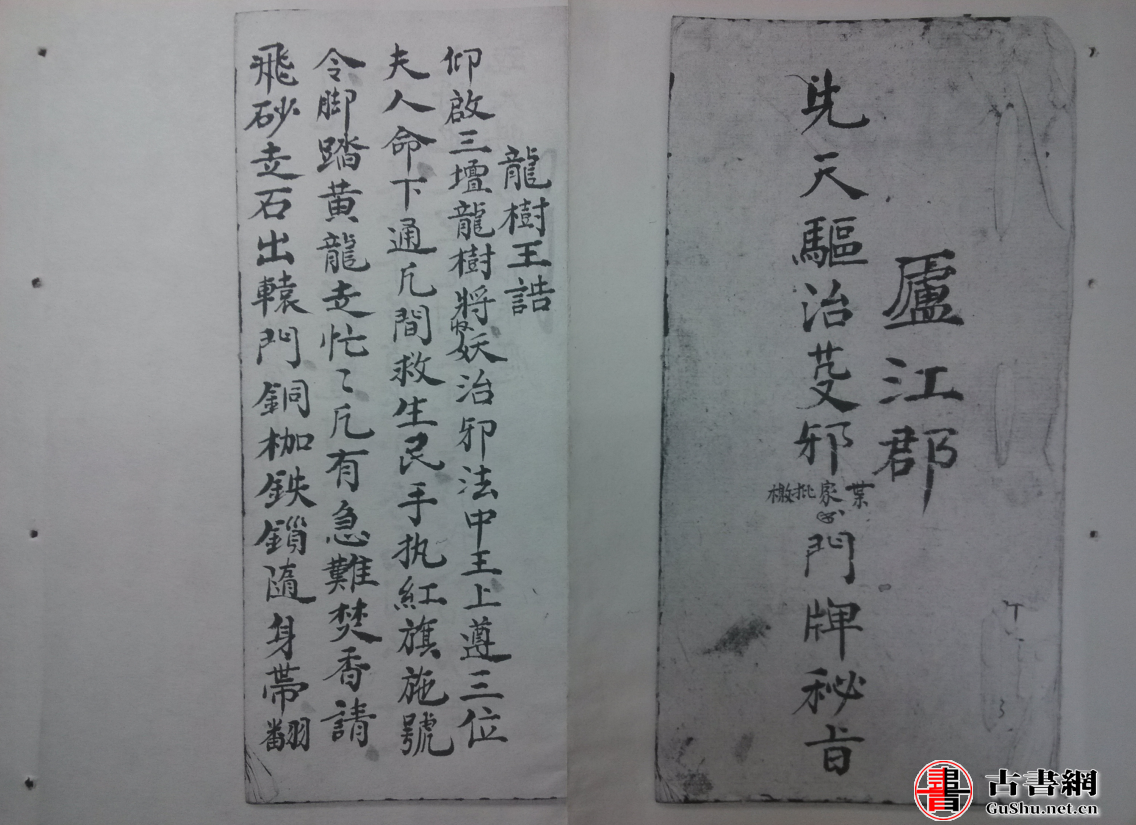 廬江郡
先天驅治芟邪門牌秘旨
葉家批檄
龍樹王誥
仰啟三壇龍樹將收妖治邪法中王上遵三位
夫人命下通凢間救生民手执紅旗施號
令脚踏黃龍走忙〻凢有急難焚香請
飛砂走石出轅門銅枷鉄鎖隨身帶翻
古書網
GuShu.net.cn